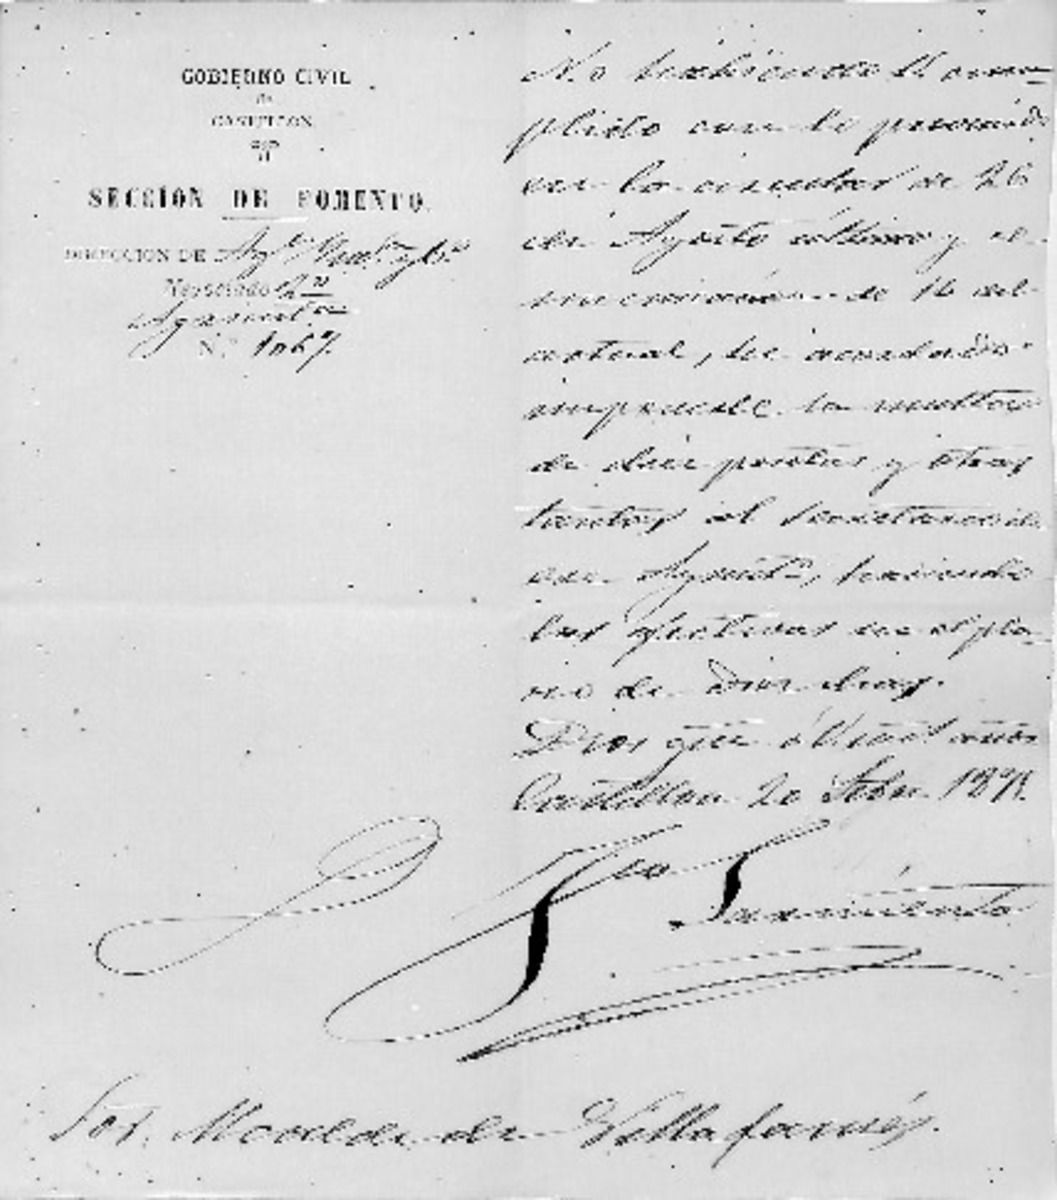 GOBIERNO CIVIL
de
CASTELLON
SECCION DE FOMENTO.
DIRECCION DE
Negociado 2º
Nº 1067
No habiendo V. cum-
plido con lo prevenido
en la circular de 26
de Agosto último y
de 14 del
actual, he acordado
imponerle la multa
de diez pesetas y otras
tantas al Secretario de
ese Ayuntº, haciendo
las efectivas en el pla-
zo de diez dias.
Dios gue á V. años
Castellon 20 Febr. 187
Sarmiento
Sor. Alcalde de Villafamés.